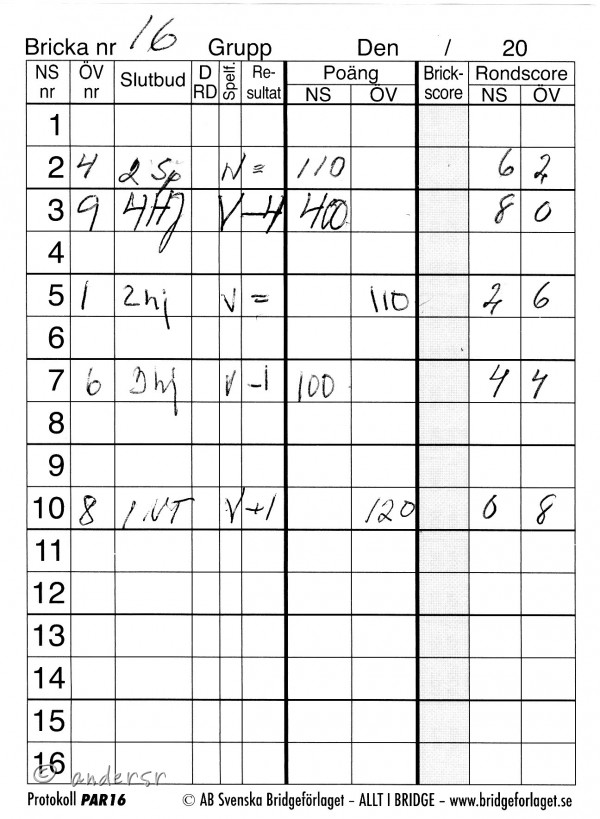 Bricka nr 16 Grupp Den / 20
NS nr ÖV nr Slutbud D RD Spelf. Re-sultat Poäng NS ÖV Brick-score Rondscore NS ÖV
1
2 4 2 Sp N = 110 6 2
3 9 4Hj V -4 400 8 0
4
5 1 2hj V = 110 2 6
6
7 6 3hj V -1 100 4 4
8
9
10 8 1 NT V +1 120 0 8
11
12
13
14
15
16
© andersr
Protokoll PAR16 © AB Svenska Bridgeförlaget – ALLT I BRIDGE – www.bridgeforlaget.se